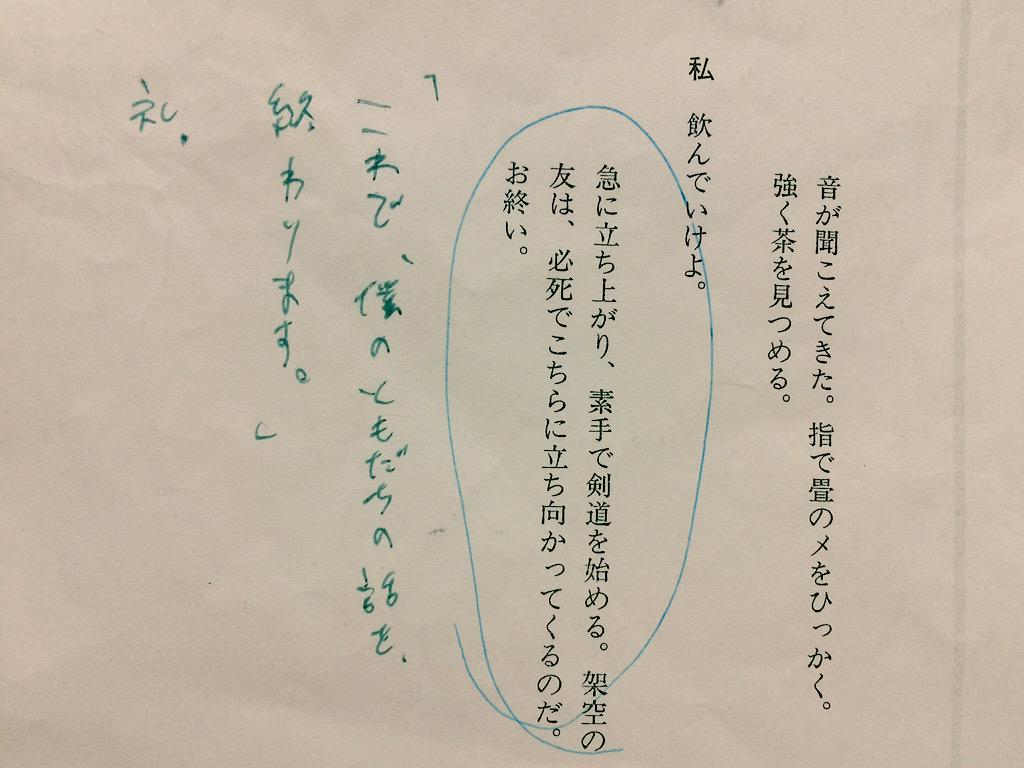 音が聞こえてきた。指で畳のメをひっかく。
強く茶を見つめる。
私　飲んでいけよ。
急に立ち上がり、素手で剣道を始める。架空の
友は、必死でこちらに立ち向かってくるのだ。
お終い。
「
これで、僕のともだちの話を、
終わります。」
礼。